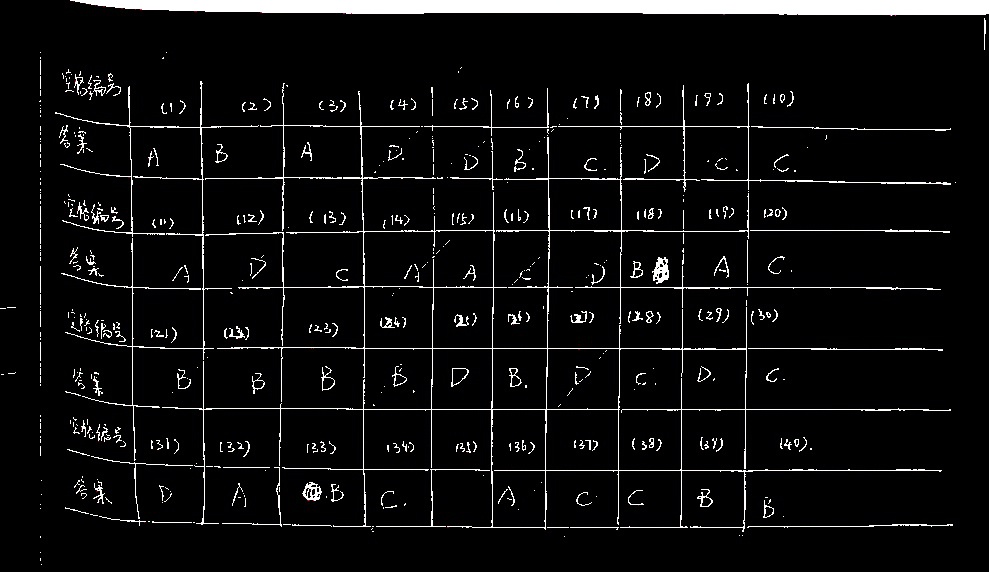 空格编号 (1) (2) (3) (4) (5) (6) (7) (8) (9) (10)
答案 A B A D. D B. C. D C. C.
空格编号 (11) (12) (13) (14) (15) (16) (17) (18) (19) (20)
答案 A D C A A C D B A C.
空格编号 (21) (22) (23) (24) (25) (26) (27) (28) (29) (30)
答案 B B B B. D B. D C. D. C.
空格编号 (31) (32) (33) (34) (35) (36) (37) (38) (39) (40).
答案 D A B C. A C C B B.